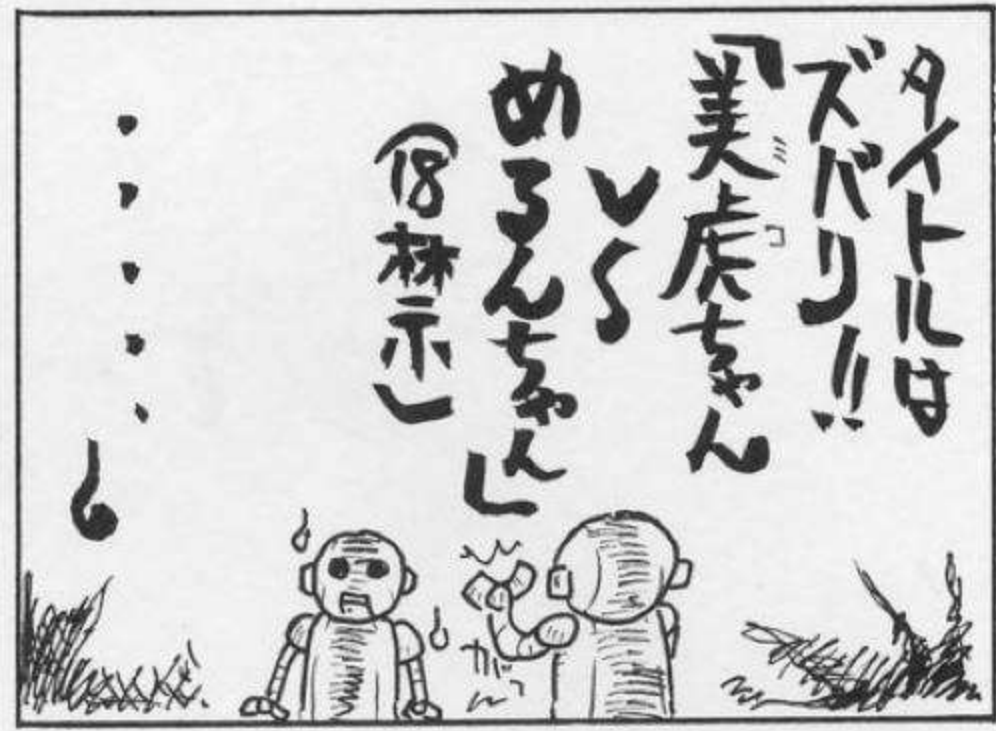 タイトルは
ズバリ!!
「美虎ちゃん
ミコ
VS
めるんちゃん」
(18禁)
・・・・・
ガッ